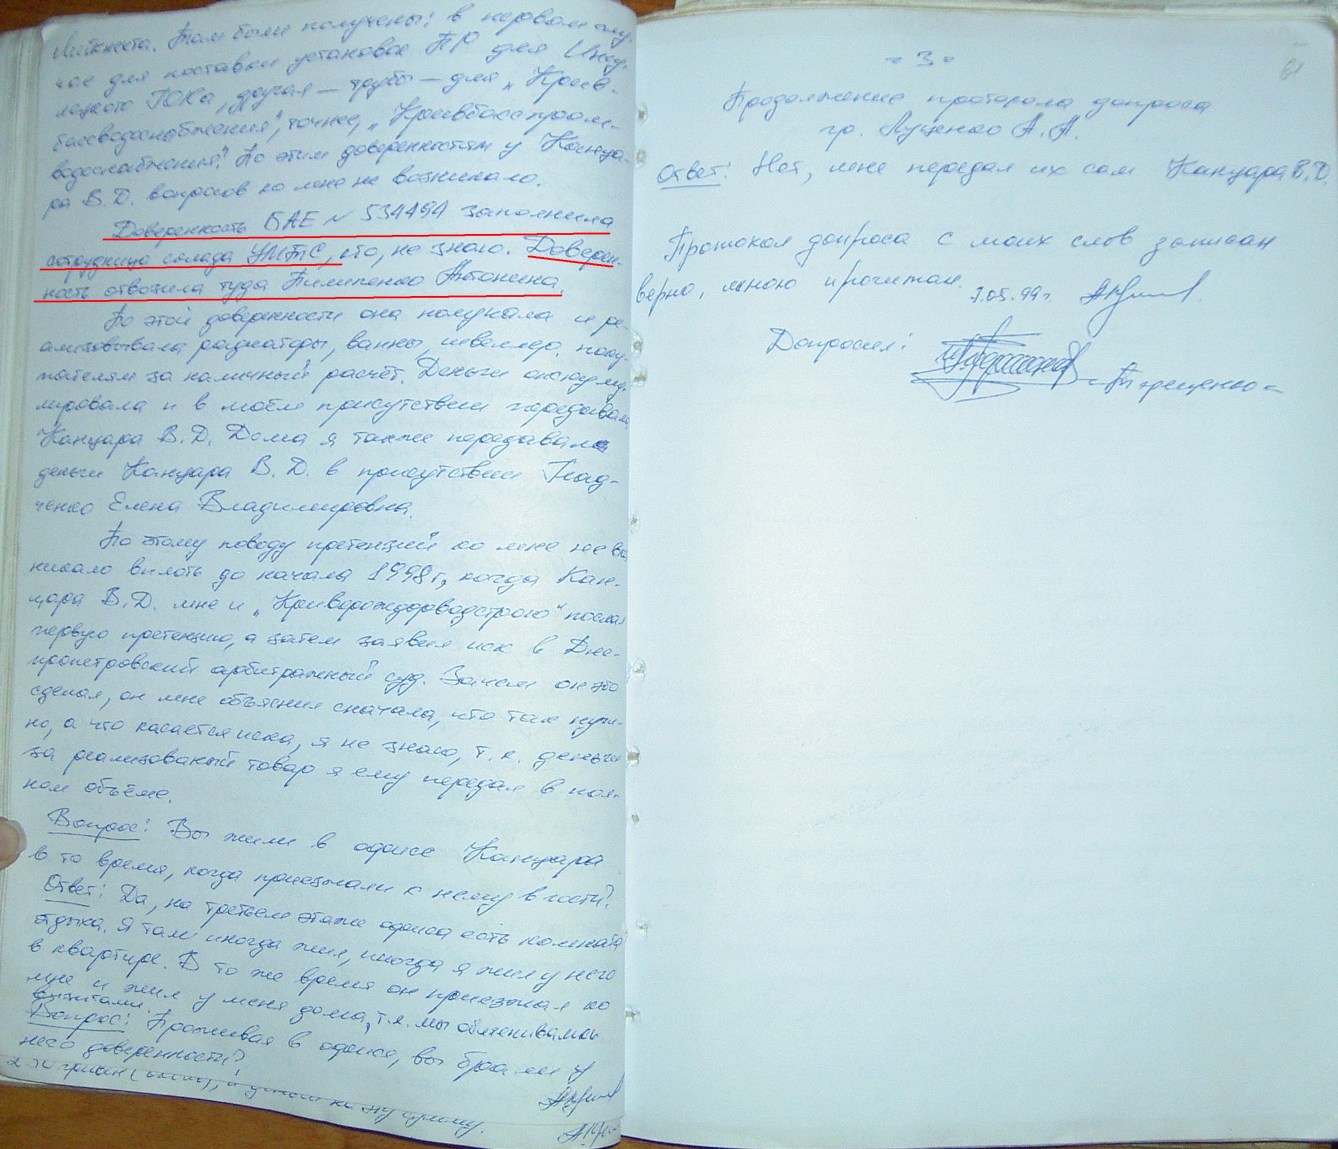 Там были получены: в первом слу-
чае для поставки установок ПР для Ингу-
лецкого ГОКа, другая — трубы — для „Крив-
бассводоснабжения", точнее, „Кривбасспром-
водоснабжения". По этим доверенностям у Канца-
ра В. Д. вопросов ко мне не возникало.
Доверенность БАЕ № 534494 заполнила
сотрудница склада УМТС, кто, не знаю. Доверен-
ность отвозила туда Пилипенко Антонина.
По этой доверенности она получала и ре-
ализовывала радиаторы, ванны, швеллер, поку-
пателям за наличный расчёт. Деньги аккуму-
лировала и в моём присутствии передавала
Канцара В. Д. Дома я также передавал
деньги Канцара В. Д. в присутствии
ченко Елена Владимировна.
По этому поводу претензий ко мне не воз-
никало вплоть до начала 1998 г, когда Кан-
цара В. Д. мне и „Криворождорводстрою" послал
первую претензию, а затем заявил иск в Дне-
пропетровский арбитражный суд. Зачем он это
сделал, он мне объяснил сначала, что так нуж-
но, а что касается иска, я не знаю, т. к. деньги
за реализованый товар я ему передал в пол-
ном объёме.
Вопрос: Вы жили в офисе Канцара
в то время, когда приезжали к нему в гости?
Ответ: Да, на третьем этаже офиса есть комната
отдыха. Я там иногда жил, иногда я жил у него
в квартире. В то же время он приезжал ко
мне и жил у меня дома, т.к. мы обменивались
визитами.
Вопрос: Проживая в офисе, вы брали у
него доверенности?
- 3 -
61
Продолжение протокола допроса
гр. Луценко А. А.
Ответ: Нет, мне передал их сам Канцара В. Д.
Протокол допроса с моих слов записан
верно, мною прочитан. 7.05.99г.
Допросил: - Терещенко -